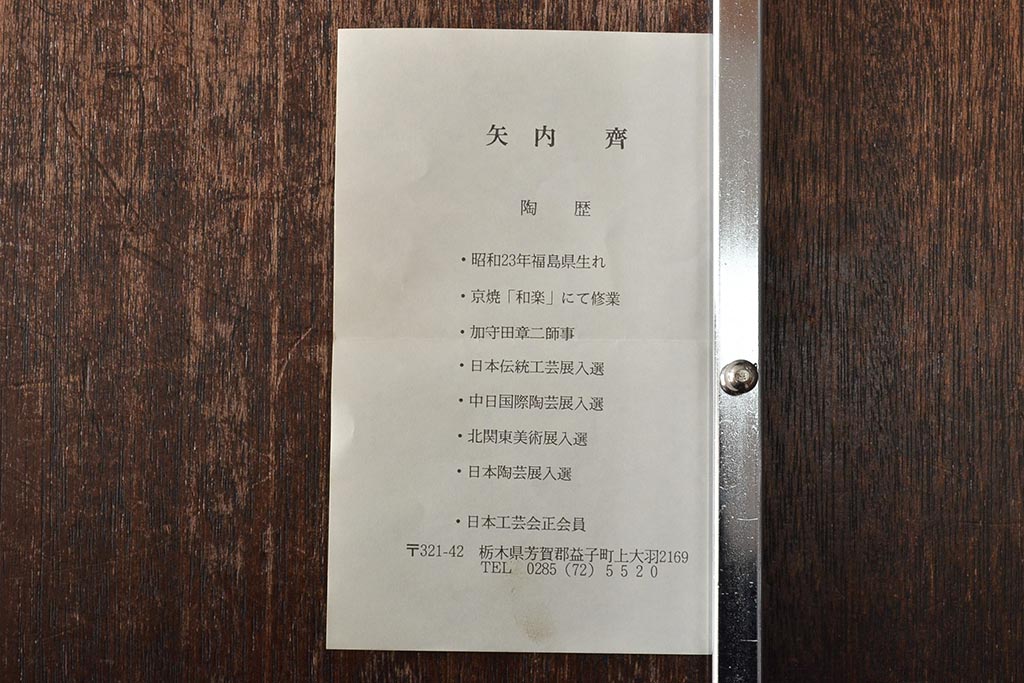 矢内 齊
陶 歴
・昭和23年福島県生れ
・京焼「和楽」にて修業
・加守田章二師事
・日本伝統工芸展入選
・中日国際陶芸展入選
・北関東美術展入選
・日本陶芸展入選
・日本工芸会正会員
〒321-42 栃木県芳賀郡益子町上大羽2169
TEL 0285(72)5520